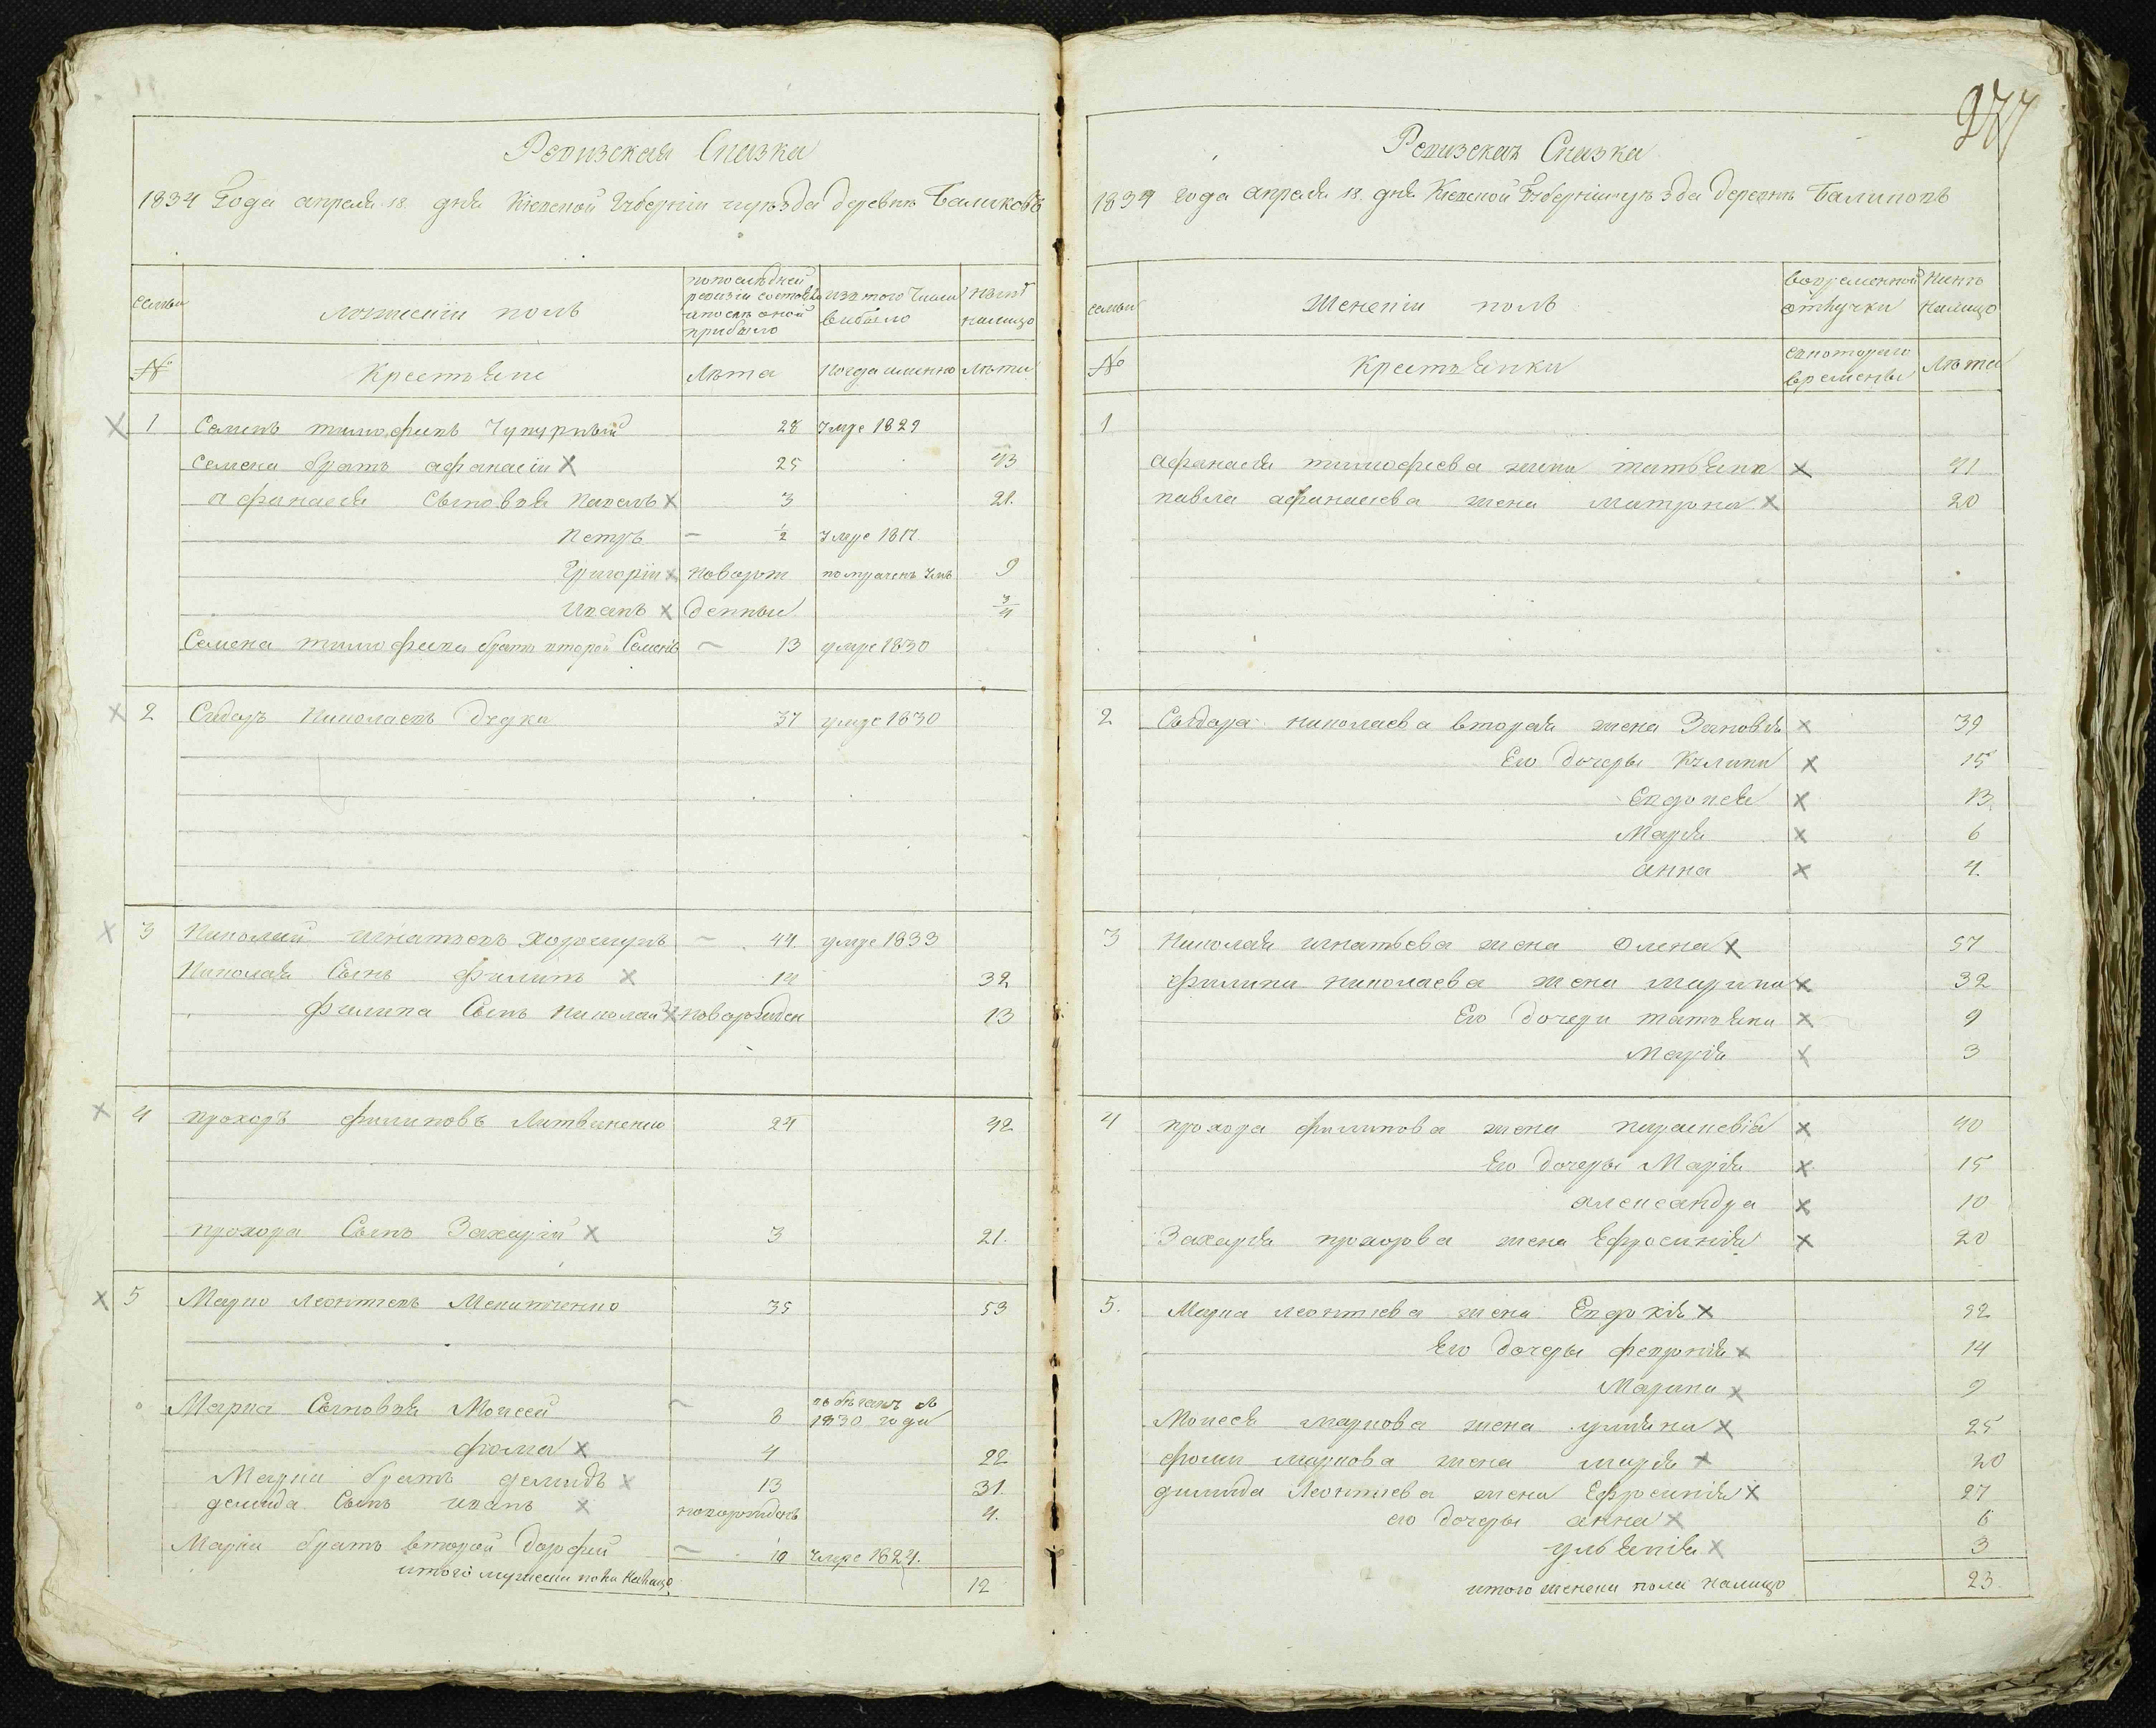 277
Ревизская Сказка
1834 Года апреля 18 дня Киевской Губернии и уезда деревне Баликовъ
семьи
мужеский полъ
по последней ревизии состояло и после оной прибыло
изъ того числа выбыло
ныне налицо
№
Крестьяне
Лета
когда именно
Лета
1 Семенъ тимофиевъ 28 Умре 1829
Семена братъ афанасий 25 43
афанасия Сыновья Павелъ 3 21.
Петръ – 1/2 Умре 1817
Григорий новорож 9
Иванъ денные 3/4
Семена тимофиева братъ второй Семенъ – 13 умре 1830
2 Сидоръ Николаевъ Дудка 37 умре 1830
3 Николай игнатьевъ хорошунъ – 44. умре 1833
Николая Сынъ филипъ 14 32
филипа Сынъ Николай новорожден 13
4 прохоръ филиповъ Литвиненко 24 42
прохора Сынъ Захарий 3 21.
5 Марко леонтиевъ 35 53
Марка Сыновья Моисей – 8 въ бегахъ съ 1830 года
фома 4 22
Марка братъ демидъ 13 31
демида Сынъ иванъ новорожденъ 4.
Марка братъ второй Дорофий – 10 умре 1824.
итого мужеска пола налицо 12
Ревизская Сказка
1834 года апреля 18. дня Киевской Губернии и уезда деревне Баликовъ
семьи
Женский полъ
во временной отлучки
Ныне налицо
№
Крестьянки
съ которого времены
Лета
1
афанасия тимофиева жена татьяна 41
павла афанасиева жена матрона 20
2 Сыдора николаева вторая жена Зиновия 39
Его дочеры Кулина 15
Евдокия 13
Мария 6
анна 4.
3 Николая игнатьева жена Олена 57
филипа николаева жена марина 32
Его дочери татьяна 9
Мария 3
4 прохора филипова жена параскевия 40
Его дочеры Мария 15
александра 10
Захария прохорова жена Ефросиния 20
5. Марка леонтиева жена Евдокия 52
Его дочеры феврония 14
Марина 9
Моисея маркова жена улияна 25
фоми маркова жена мария 20
димида Леонтиева жена Ефросиния 27
его дочеры анна 6
ульяния 3
итого женска пола налицо 23.